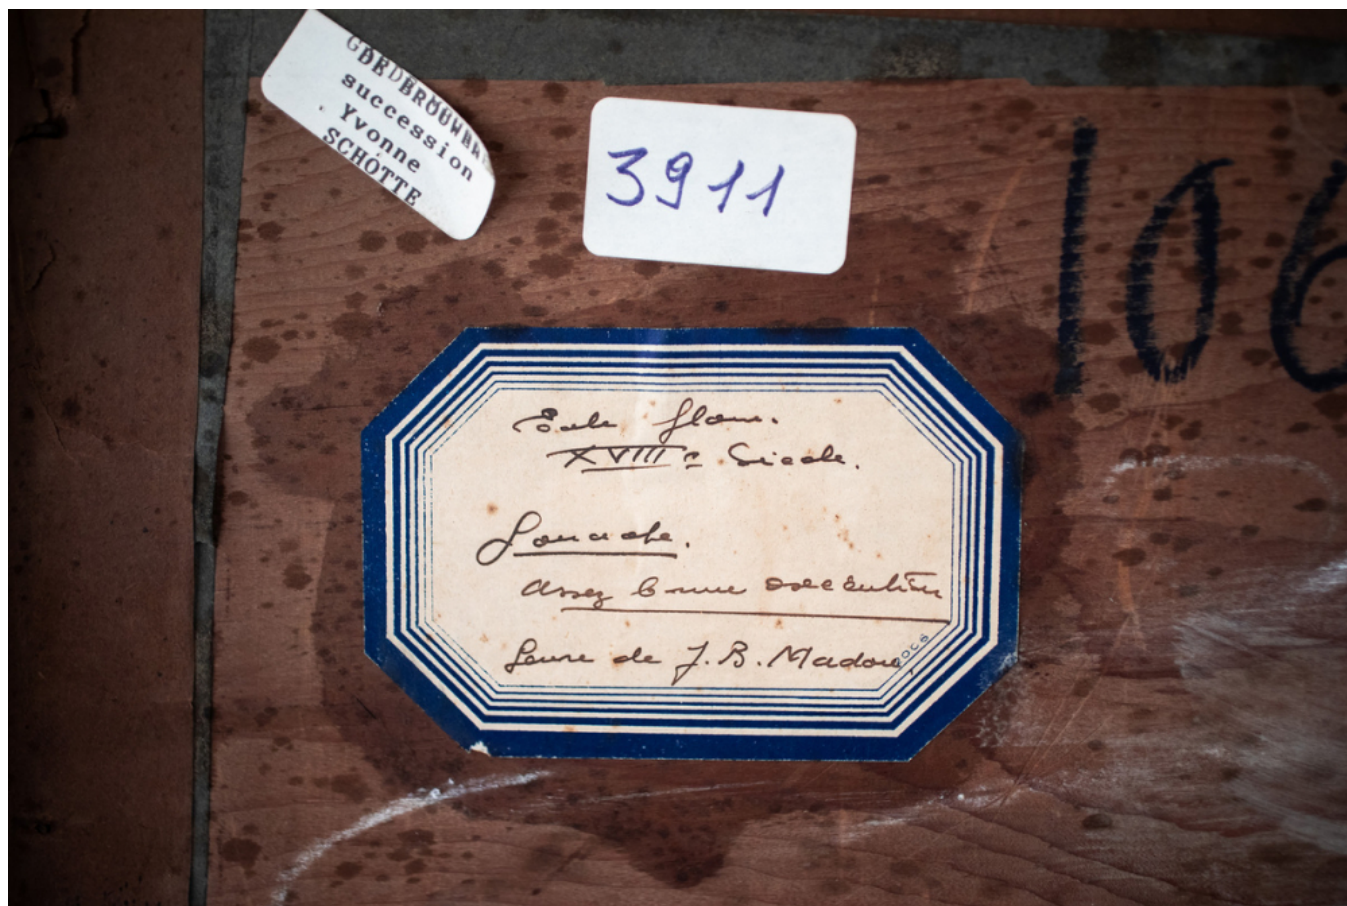 succession
Yvonne
SCHOTTE
3911
106
Ecole flam.
XVIIIe Siecle.
Gouache.
assez bonne exécution
Genre de J. B. Madou